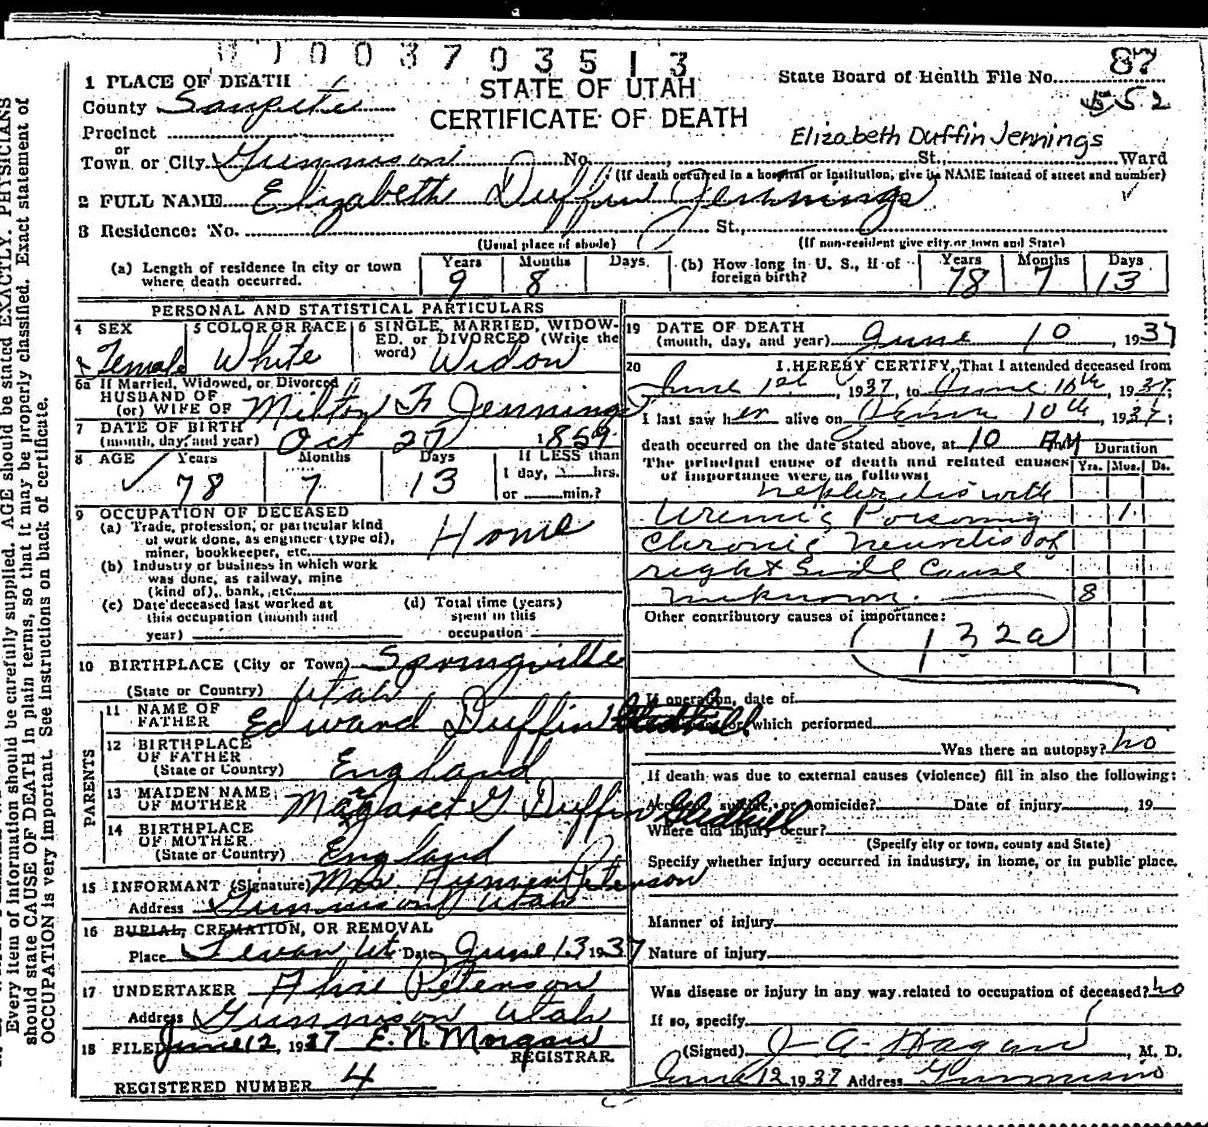 003703513
STATE OF UTAH
CERTIFICATE OF DEATH
State Board of Health File No. 87
552
1 PLACE OF DEATH
County Sanpete
Precinct
or
Town or City Gunnison No. St., Ward
Elizabeth Duffin Jennings
(If death occurred in a hospital or institution, give its NAME instead of street and number)
2 FULL NAME Elizabeth Duffin Jennings
3 Residence: No. St.,
(Usual place of abode) (If non-resident give city or town and State)
(a) Length of residence in city or town where death occurred. Years 9 Months 8 Days
(b) How long in U. S., if of foreign birth? Years 78 Months 7 Days 13
PERSONAL AND STATISTICAL PARTICULARS
4 SEX Female
5 COLOR OR RACE White
6 SINGLE, MARRIED, WIDOWED, or DIVORCED (Write the word) Widow
6a If Married, Widowed, or Divorced
HUSBAND OF
(or) WIFE OF Milton F Jennings
7 DATE OF BIRTH
(month, day, and year) Oct 27 1859
8 AGE Years 78 Months 7 Days 13 If LESS than
1 day, hrs.
or min.?
9 OCCUPATION OF DECEASED
(a) Trade, profession, or particular kind
of work done, as engineer (type of),
miner, bookkeeper, etc. Home
(b) Industry or business in which work
was done, as railway, mine
(kind of), bank, etc.
(c) Date deceased last worked at
this occupation (month and
year)
(d) Total time (years)
spent in this
occupation
10 BIRTHPLACE (City or Town) Springville
(State or Country) Utah
PARENTS
11 NAME OF
FATHER Edward Duffin
12 BIRTHPLACE
OF FATHER
(State or Country) England
13 MAIDEN NAME
OF MOTHER Margaret G Duffin Gledhill
14 BIRTHPLACE
OF MOTHER
(State or Country) England
15 INFORMANT (Signature) Mrs. Peterson
Address Gunnison Utah
16 BURIAL, CREMATION, OR REMOVAL
Place Levan Ut Date June 13 1937
17 UNDERTAKER Peterson
Address Gunnison Utah
18 FILED June 12, 1937 E. N. Morgan
REGISTRAR.
REGISTERED NUMBER 4
19 DATE OF DEATH
(month, day, and year) June 10, 1937
20 I HEREBY CERTIFY, That I attended deceased from
June 1st, 1937, to June 10th, 1937;
I last saw her alive on June 10th, 1937;
death occurred on the date stated above, at 10 AM
Duration
The principal cause of death and related causes
of importance were as follows:
Yrs. Mos. Ds.
Nephritis with
Uremic Poisoning 1
Chronic neuritis of
right Side Cause
unknown. 8
Other contributory causes of importance:
132a
If operation, date of
for which performed
Was there an autopsy? no
If death was due to external causes (violence) fill in also the following:
Accident, suicide, or homicide? Date of injury, 19
Where did injury occur?
(Specify city or town, county and State)
Specify whether injury occurred in industry, in home, or in public place.
Manner of injury
Nature of injury
Was disease or injury in any way related to occupation of deceased? no
If so, specify
(Signed) J A Hagan, M. D.
June 12 1937 Address Gunnison
Every item of information should be carefully supplied. AGE should be stated EXACTLY. PHYSICIANS
should state CAUSE OF DEATH in plain terms, so that it may be properly classified. Exact statement of
OCCUPATION is very important. See instructions on back of certificate.